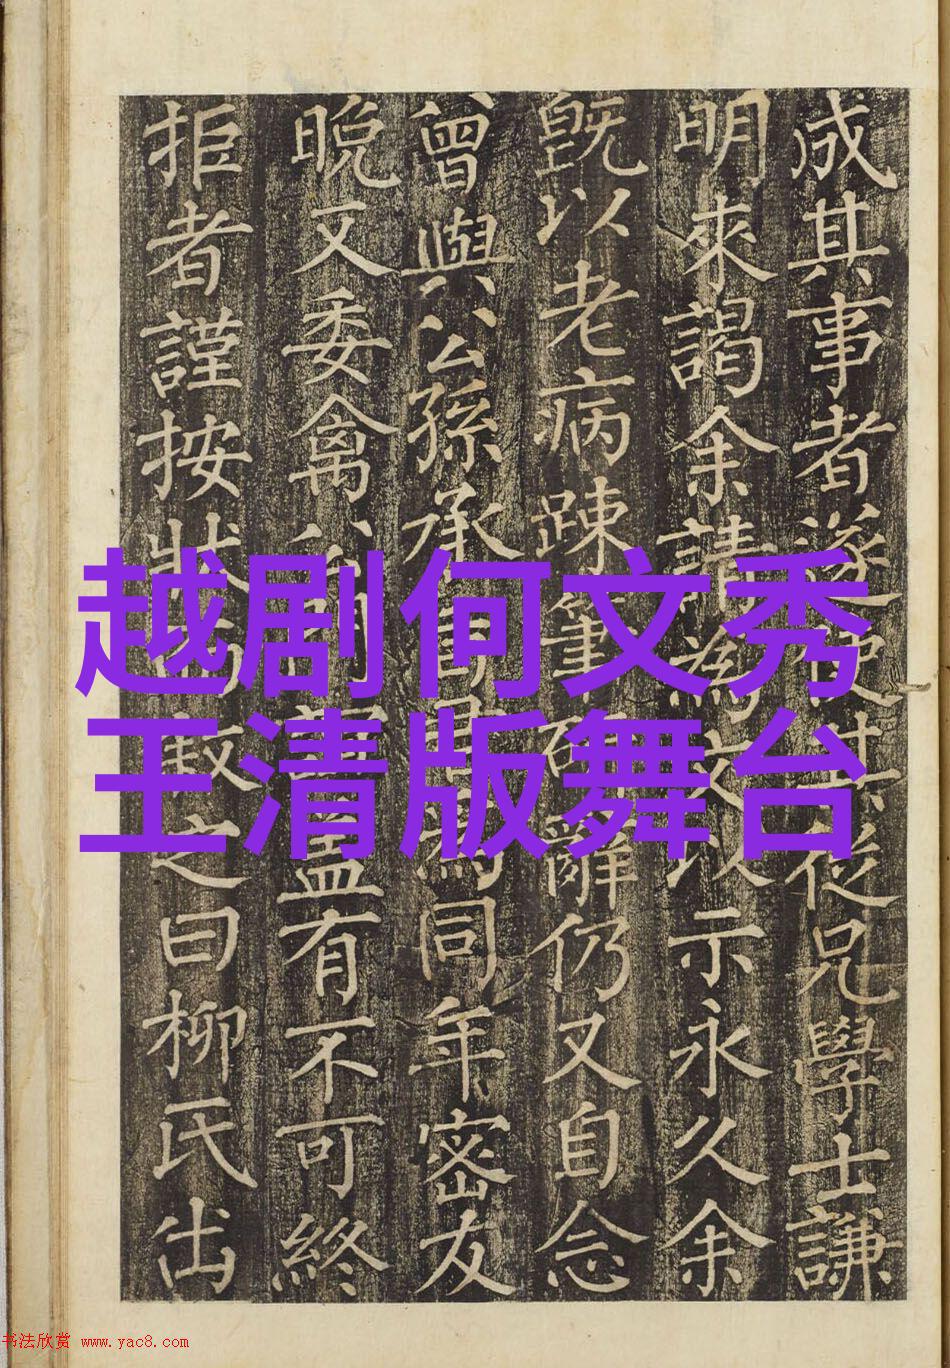 成其事者遂使其從兄學士謙
明來謁余請為文以示永久余
既以老病踈筆硯辭仍又自念
曾與公孫承為同年密友
晚又委禽門益有不可終
拒者謹按狀而敘之曰柳氏出
越剧何文秀
王清版舞台
书法欣赏 www.yac8.com